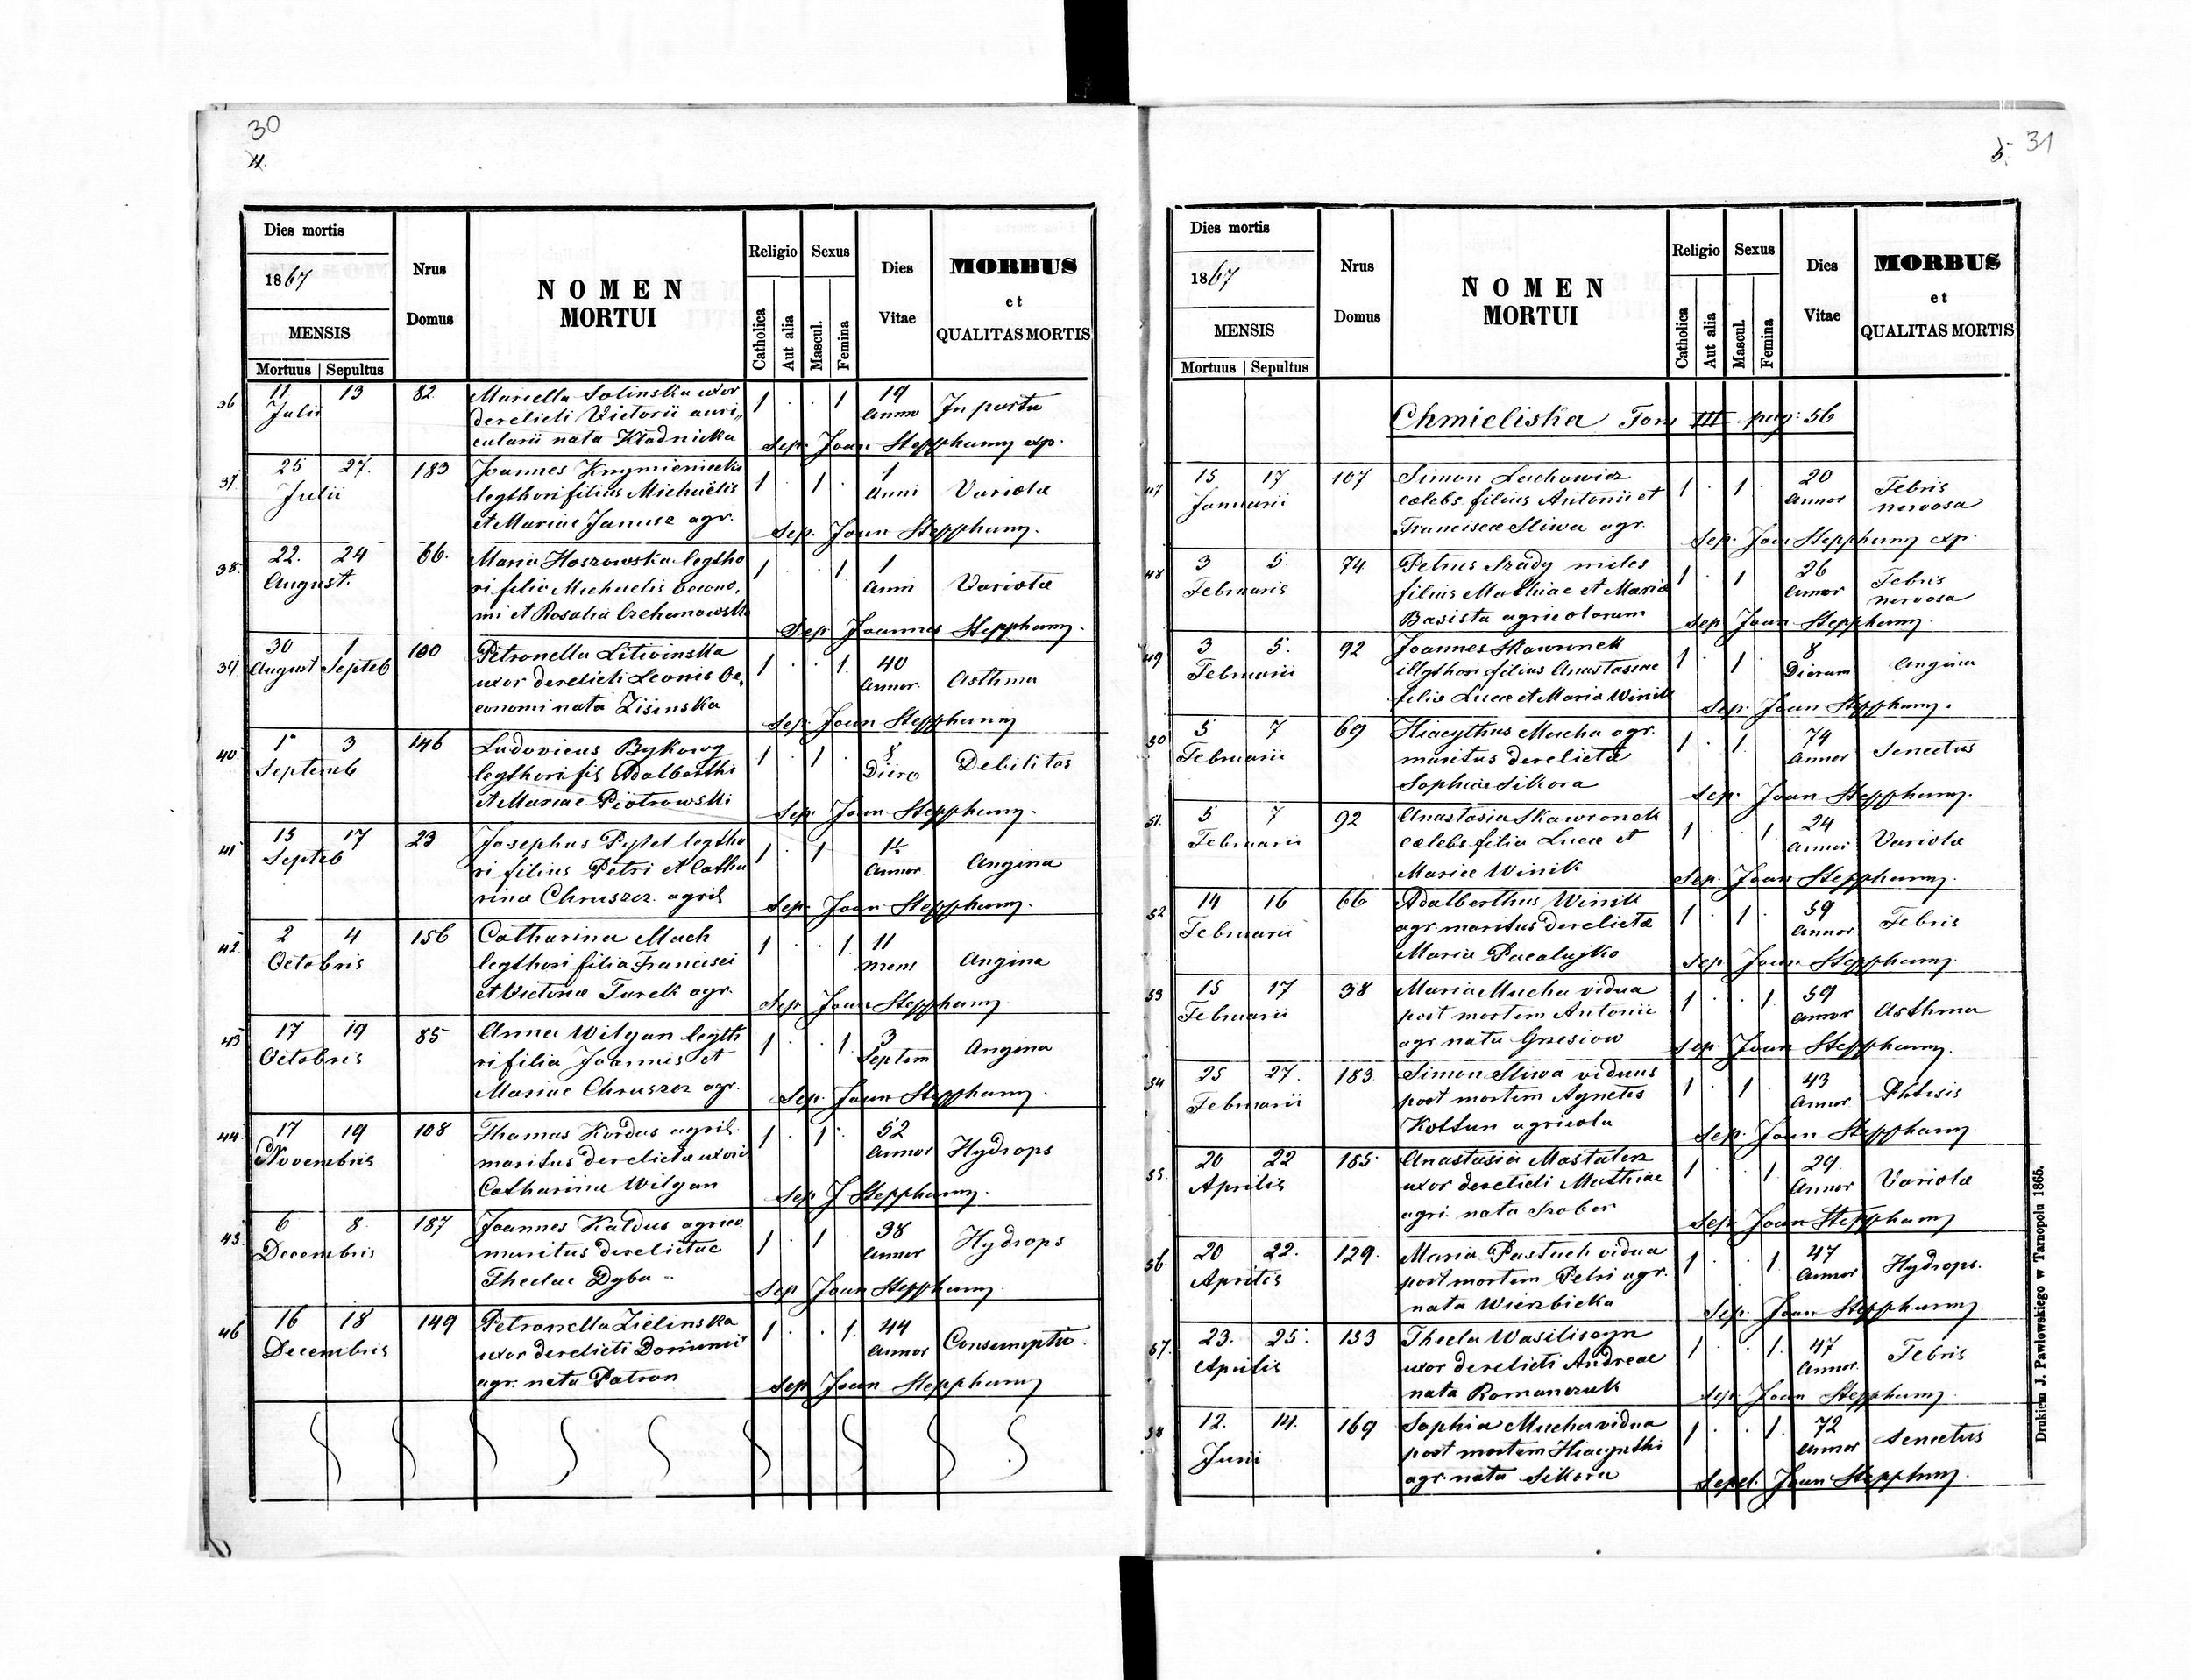 30
4.
Dies mortis
1867
MENSIS
Mortuus | Sepultus
Nrus
Domus
NOMEN
MORTUI
Religio
Catholica
Aut alia
Sexus
Mascul.
Femina
Dies
Vitae
MORBUS
et
QUALITAS MORTIS
36 11 13 82. Mariella Solinska uxor 1 . . 1 19
Julii derelicti Victorii auri„ annor In partu
cularii nata Kładnicka Sep. Joan Steppham exp.
37 25 27. 183 Joannes Krzymieniecki 1 . 1 . 1
Julii legthori filius Michaëlis anni Variolæ
et Mariae Janusz agr. Sep. Joan Steppham.
38. 22. 24 66. Maria Hoszowska legtho 1 . . 1 1
August. ri filia Michaelis oecono, anni Variolæ
mi et Rosalia Czehanowska Sep Joannes Steppham.
39. 30 1 100 Petronella Litwinska 1 . . 1. 40
August Septeb uxor derelicti Leonis Oe, annor. Asthma
conomi nata Zisinska Sep. Joan Steppham
40. 1. 3 146 Ludovicus Bykowy 1 . 1 . 8
Septemb legthori fis Adalberthi Diiro Debilitas
et Mariae Piotrowski Sep. Joan Steppham.
41 15 17 23 Josephus Pytel legtho 1 . 1 1½
Septeb ri filius Petri et Catha annor. Angina
rinæ Chruszcz. agril Sep. Joan Steppham.
42. 2 4 156 Catharina Mach 1 . . 1. 11
Octobris legthori filia Francisci mens Angina
et Victoriæ Turek agr. Sep. Joan Steppham
43. 17 19 85 Anna Wilgan legth 1 . . 1. 3
Octobris ri filia Joannis et Septem Angina
Mariae Chruszcz agr. Sep. Joan Steppham.
44. 17 19 108 Thomas Kordas agril. 1 . 1 . 52
Novembris maritus derelictæ uxoris annor Hydrops
Cathariina Wilgan Sep J Steppham.
45. 6 8. 187 Joannes Kaldus agrico. 1 . 1 38
Decembris maritus derelictae annor Hydrops
Theclae Dyba Sep Joan Steppham.
46 16 18 149 Petronella Zielinska 1 . . 1. 44
Decembris uxor derelicti Dominici annor Consumptio.
agr. nata Patron Sep Joan Steppham
5. 31
Dies mortis
1867
MENSIS
Mortuus | Sepultus
Nrus
Domus
NOMEN
MORTUI
Religio
Catholica
Aut alia
Sexus
Mascul.
Femina
Dies
Vitae
MORBUS
et
QUALITAS MORTIS
Chmieliska Tom III pag: 56
47 15 17 107 Simon Lachowicz 1 . 1 . 20 Febris
Januarii cælebs filius Antonii et Annor nervosa
Franciscæ Sliwa agr. Sep. Joan Steppham exp.
48 3 5. 74 Petrus Szady miles 1 . 1 26 Febris
Februaris filius Mathiae et Maria annor nervosa
Basista agricolarum Sep Joan Steppham.
49 3 5. 92 Joannes Skawronek 1 . 1 8
Februarii illgthori filius Anastasiae Dierum Angina
filia Lucæ et Maria Winik Sep. Joan Steppham.
50 5 7 69 Hiacythus Mucha agr. 1 . 1. 74
Februarii maritus derelictæ Annor Senectus
Sophiæ Sikora Sep. Joan Steppham.
51. 5 7 92 Anastasia Skawronek 1 . . 1. 24
Februarii cælebs filia Lucæ et Annor Variolæ
Mariæ Winik Sep. Joan Steppham.
52 14 16 66 Adalberthus Winik 1 . 1 . 59
Februarii agr. maritus derelictæ annor. Febris
Maria Pacalujko Sep Joan Steppham.
53 15 17 38 Maria Mucha vidua 1 . . 1. 59
Februarii post mortem Antonii annor. Asthma
agr nata Grzesiow Sep. Joan Steppham.
54 25 27. 183. Simon Sliwa viduus 1 . 1 43
Februarii post mortem Agnetis Annor Phtisis
Kottun agricola Sep. Joan Steppham
55. 20 22 185. Anastasia Mastalerz 1 . . 1. 29.
Aprilis uxor derelicti Mathiae Annor Variolæ
agri. nata Szober Sep Joan Steppham
56. 20 22. 129. Maria Pastuch vidua 1 . . 1. 47
Aprilis post mortem Petri agr. Annor Hydrops.
nata Wierzbicka Sep. Joan Steppham
57. 23. 25. 153 Thecla Wasiliszyn 1 . . 1. 47
Aprilis uxor derelicti Andreae annor. Febris
nata Romanczuk Sep. Joan Steppham.
58 12. 14. 169 Sophia Mucha vidua 1 . . 1. 72
Junii post mortem Hiacynthi annor Senectus
agr. nata Sikora Sepel. Joan Steppham.
Drukiem J. Pawłowskiego w Tarnopolu 1865.